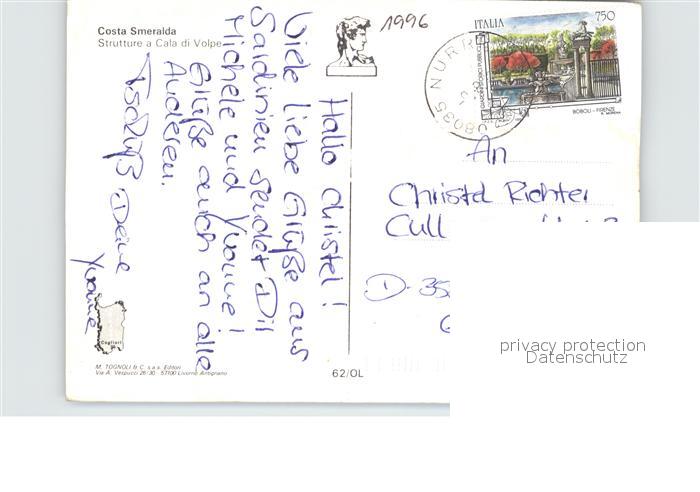 Costa Smeralda
Strutture a Cala di Volpe
1996
ITALIA
750
GIARDINI STORICI PUBBLICI
BOBOLI - FIRENZE
08035 NURR
Hallo Christel!
Viele liebe Grüße aus
Sardinien sendet Dir
Michele und Yvonne!
Grüße auch an alle
Anderen.
Tschüß Deine
Yvonne
An
Christel Richter
Cull
D-35
Cagliari
M. TOGNOLI & C. s.a.s. Editori
Via A. Vespucci 26/30 - 57100 Livorno Artigiano
62/OL
privacy protection
Datenschutz